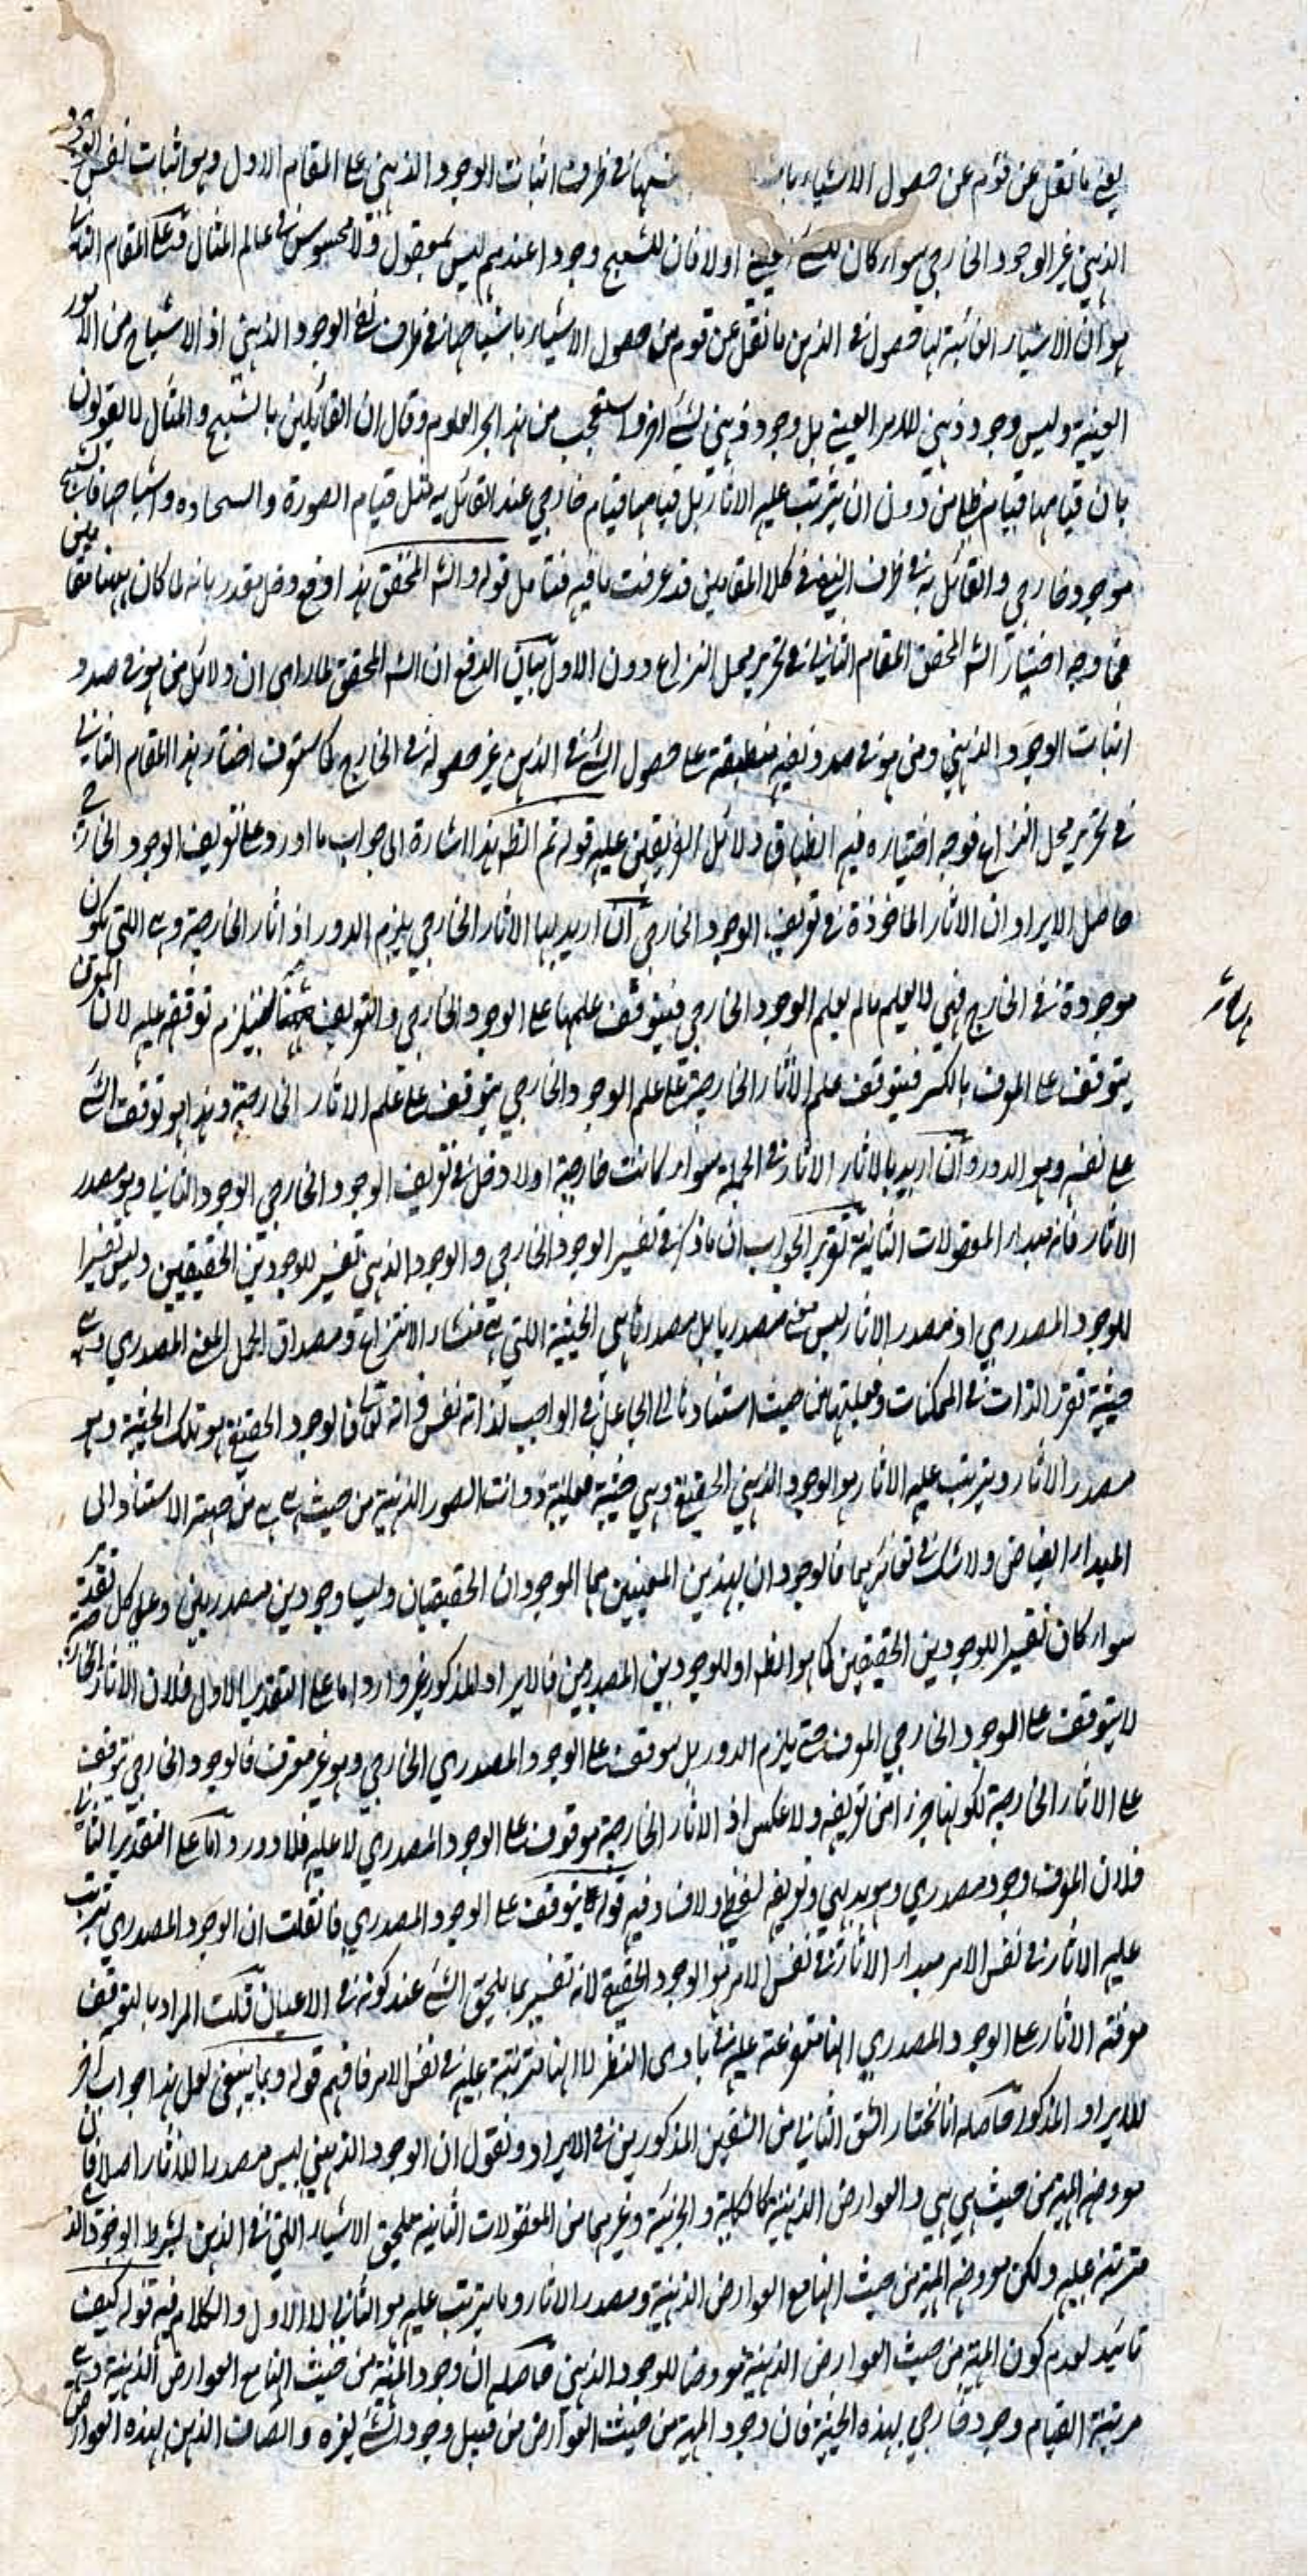 يعني ما نقل عن قوم عن حصول الاشياء باشباحها في طرف اثبات الوجود الذهني على المقام الاول وهو اثبات نفس الوجود
الذهني غير الوجود الخارجي سواء كان للشئ العيني اولا فان للشبح وجودا عندهم ليس بمعقول ولا محسوس في عالم المثال وعلى المقام الثاني
هو ان الاشياء الغائبة لها حصول في الذهن ما نقل عن قوم من حصول الاشياء باشباحها في طرف نفي الوجود الذهني اذ الاشباح من الامور
العينية وليس وجود ذهني للامر العيني بل وجود ذهني لشئ اخر استعجب من هذا بحر العلوم وقال ان القائلين بالشبح والمثال لا يقولون
بان قيامها قيام ظلي من دون ان يترتب عليه الاثار بل قيامها قيام خارجي عند القائل به مثل قيام الصورة والسخاوة واشباحها فالشبح
موجود خارجي والقائل به في طرف النفي في كلا المقامين قد عرفت ما فيه فتأمل قوله والشه المحقق هذا دفع دخل مقدر بانه لما كان ههنا مقامين
فما وجه اختيار الشه المحقق المقام الثاني في تحرير محل النزاع دون الاول بيان الدفع ان الشه المحقق لما راى ان دلائل من هو في صدد
اثبات الوجود الذهني ومن هو في صدد نفيه منطبقة على حصول الشئ في الذهن غير حصوله في الخارج كما ستعرف اختار هذا المقام الثاني
في تحرير محل النزاع فوجه اختياره فيه انطباق دلائل الفريقين عليه قوله ثم الظه هذا اشارة الى جواب ما اورد على تعريف الوجود الخارجي
حاصل الايراد ان الاثار الماخوذة في تعريف الوجود الخارجي ان اريد بها الاثار الخارجي يلزم الدور اذ اثار الخارجية وهي اللتي تكون
موجودة في الخارج فهي لا يعلم مالم يعلم الوجود الخارجي فيتوقف علمها على الوجود الخارجي والتعريف فيلزم توقفه عليه لان المعرف
يتوقف على المعرف بالكسر فيتوقف علم الاثار الخارجية على علم الوجود الخارجي يتوقف على علم الاثار الخارجية وهذا هو توقف الشئ
على نفسه وهو الدور وان اريد بالاثار الاثار في الجملة سواء كانت خارجية اولا دخل في تعريف الوجود الخارجي الوجود الذهني وهو مصدر
الاثار فانه مبدأ المعقولات الثانية تقرير الجواب ان ما ذكر في تفسير الوجود الخارجي والوجود الذهني تفسير للوجودين الحقيقيين وليس تفسيرا
للوجود المصدري اذ مصدر الاثار ليس معنى مصدريا بل مصدرها هي الحيثية اللتي هي منشأ الانتزاع ومصداق الحمل المعنى المصدري وهي
حيثية تقرر الذات في الممكنات وفعليتها من حيث استنادها الى الجاعل في الواجب لذاته نفس ذاته تعالى فالوجود الحقيقي هو تلك الحيثية وهو
مصدر الاثار ويترتب عليه الاثار هو الوجود الذهني الحقيقي وهي حيثية فعلية ذوات الصور الذهنية من حيث هي هي من جهة الاستناد الى
المبدأ الفياض ولا شك في تغائرهما فالوجودان بهذين المعنيين هما الموجودان الحقيقيان وليسا وجودين مصدريين وعلى كل تقدير
سواء كان تفسيرا للوجودين الحقيقيين كما هو الظه او للوجودين المصدريين فالايراد المذكور غير وارد اما على التقدير الاول فلان الاثار الخارجية
لا يتوقف على الوجود الخارجي المعرف حتى يلزم الدور بل موقوف على الوجود المصدري الخارجي وهو غير معرف فالوجود الخارجي يتوقف
على الاثار الخارجية لكونها جزءا من تعريفه ولا عكس اذ الاثار الخارجية موقوف على الوجود المصدري لا عليه فلا دور واما على التقدير الثاني
فلان المعرف وجود مصدري وهو بديهي وتعريفه لفظي ولا فساد فيه قوله يتوقف على الوجود المصدري فان قلت ان الوجود المصدري يترتب
عليه الاثار في نفس الامر مبدأ الاثار في نفس الامر هو الوجود الحقيقي لانه تفسير بما يلحق الشئ عند كونه في الاعيان قلت المراد بالتوقف
معرفته الاثار على الوجود المصدري انها متفرعة عليه في بادى النظر لا انها مترتبة عليه في نفس الامر فافهم قوله وبما ينبغي لعل هذا جواب اخر
للايراد المذكور حاصله انا نختار الشق الثاني من الشقين المذكورين في الايراد ونقول ان الوجود الذهني ليس مصدرا للاثار اصلا فان
معروضه المهية من حيث هي هي والعوارض الذهنية كالكلية والجزئية وغيرهما من المعقولات الثانية تلحق الاشياء اللتي في الذهن بشرط الوجود الذهني
مترتبة عليه ولكن معروضه المهية من حيث انها مع العوارض الذهنية ومصدر الاثار وما يترتب عليه هو الثاني لا الاول والكلام فيه قوله كيف
تائيد لعدم كون المهية من حيث العوارض الذهنية معروضا للوجود الذهني حاصله ان وجود المهية من حيث انها مع العوارض الذهنية وهي
مرتبة القيام وجود خارجي بهذه الحيثية فان وجود المهية من حيث العوارض من قبيل وجود الشئ لغيره واتصاف الذهن بهذه العوارض